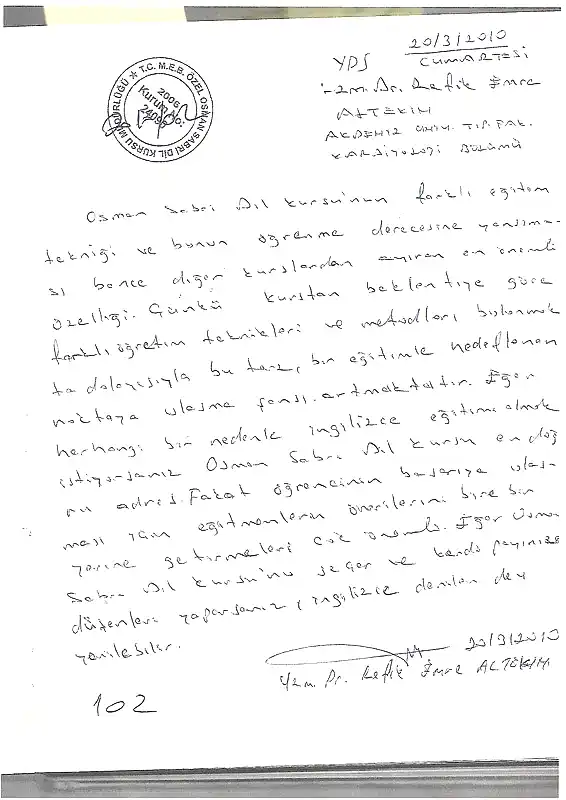 20/3/2010
YDS CUMARTESİ
Uzm. Dr. Refik Emre
ALTEKİN
AKDENİZ ÜNİV. TIP. FAK.
KARDİYOLOJİ BÖLÜMÜ
T.C. M.E.B. ÖZEL OSMAN SABRİ DİL KURSU MÜDÜRLÜĞÜ ★
2006
Kurum No:
Osman Sabri Dil kursu'nun farklı eğitim
tekniği ve bunun öğrenme derecesine yansıma-
sı bence diğer kurslardan ayıran en önemli
özelliği. Çünkü kurstan beklentiye göre
farklı öğretim teknikleri ve metodları bulunmak
ta dolayısıyla bu tarz, bir eğitimle hedeflenen
noktaya ulaşma şansı artmaktatır. Eğer
herhangi bir nedenle ingilizce eğitimi almak
istiyorsanız Osman Sabri Dil kursu en doğ
ru adres. Fakat öğrencinin başarıya ulaş-
ması için eğitmenlerin önerilerini bire bir
yerine getirmeleri çok önemli. Eğer Osman
Sabri Dil kursu'nu seçer ve kendi payınıza
düşenleri yaparsanız, ingilizce denilen dev
yenilebilir.
20/3/2010
Uzm. Dr. Refik Emre ALTEKİN
102